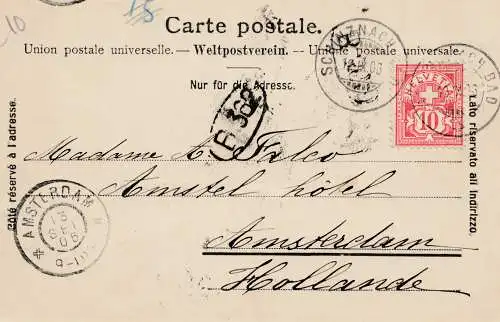 10
Carte postale.
Union postale universelle. — Weltpostverein. — Unione postale universale.
Nur für die Adresse.
Côté réservé à l'adresse.
Lato riservato all' indirizzo.
SCHINZNACH
HELVETIA
10
BAD
Madame L. Falco
Amstel hôtel
Amsterdam
Hollande
AMSTERDAM